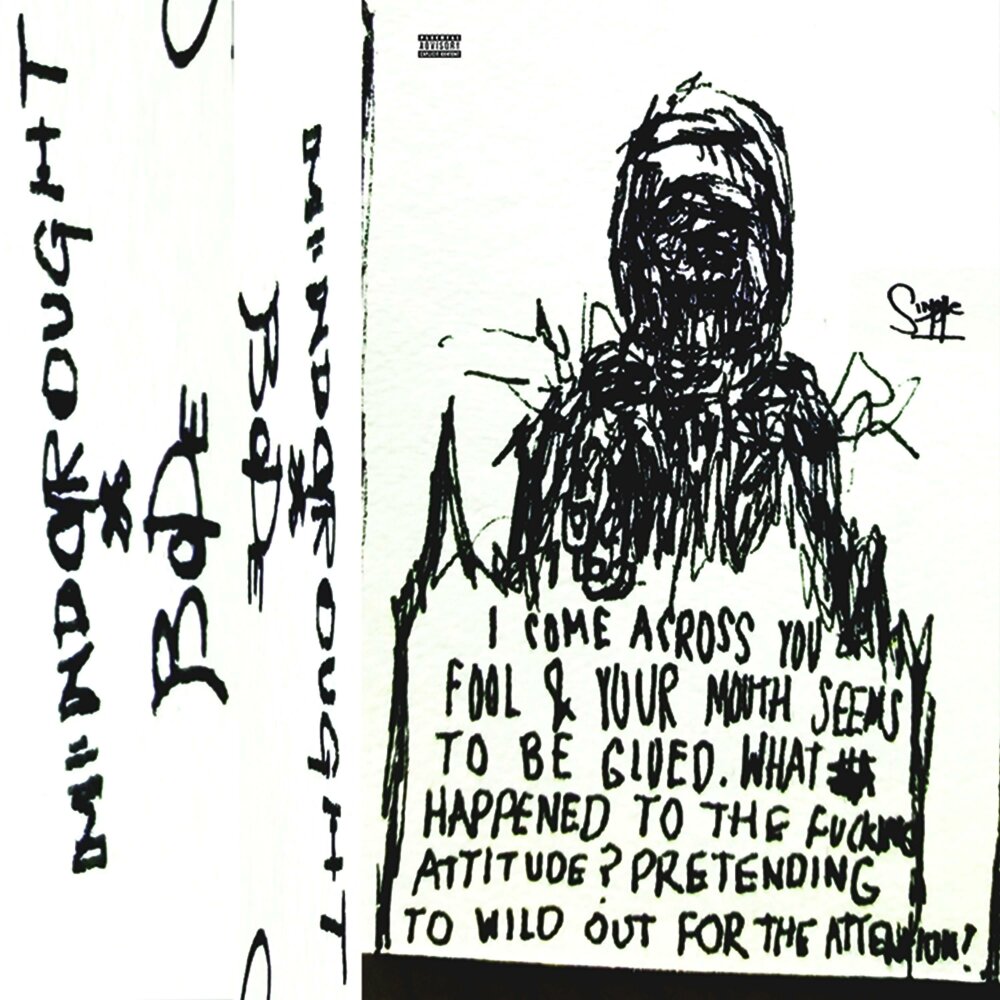 MIINDGROUGHT
&
BdE
MIINDGROUGHT
&
BdE
PARENTAL
ADVISORY
EXPLICIT CONTENT
I COME ACROSS YOU
FOOL & YOUR MOUTH SEEMS
TO BE GLUED. WHAT
HAPPENED TO THE FUCKING
ATTITUDE? PRETENDING
TO WILD OUT FOR THE ATTENTION!